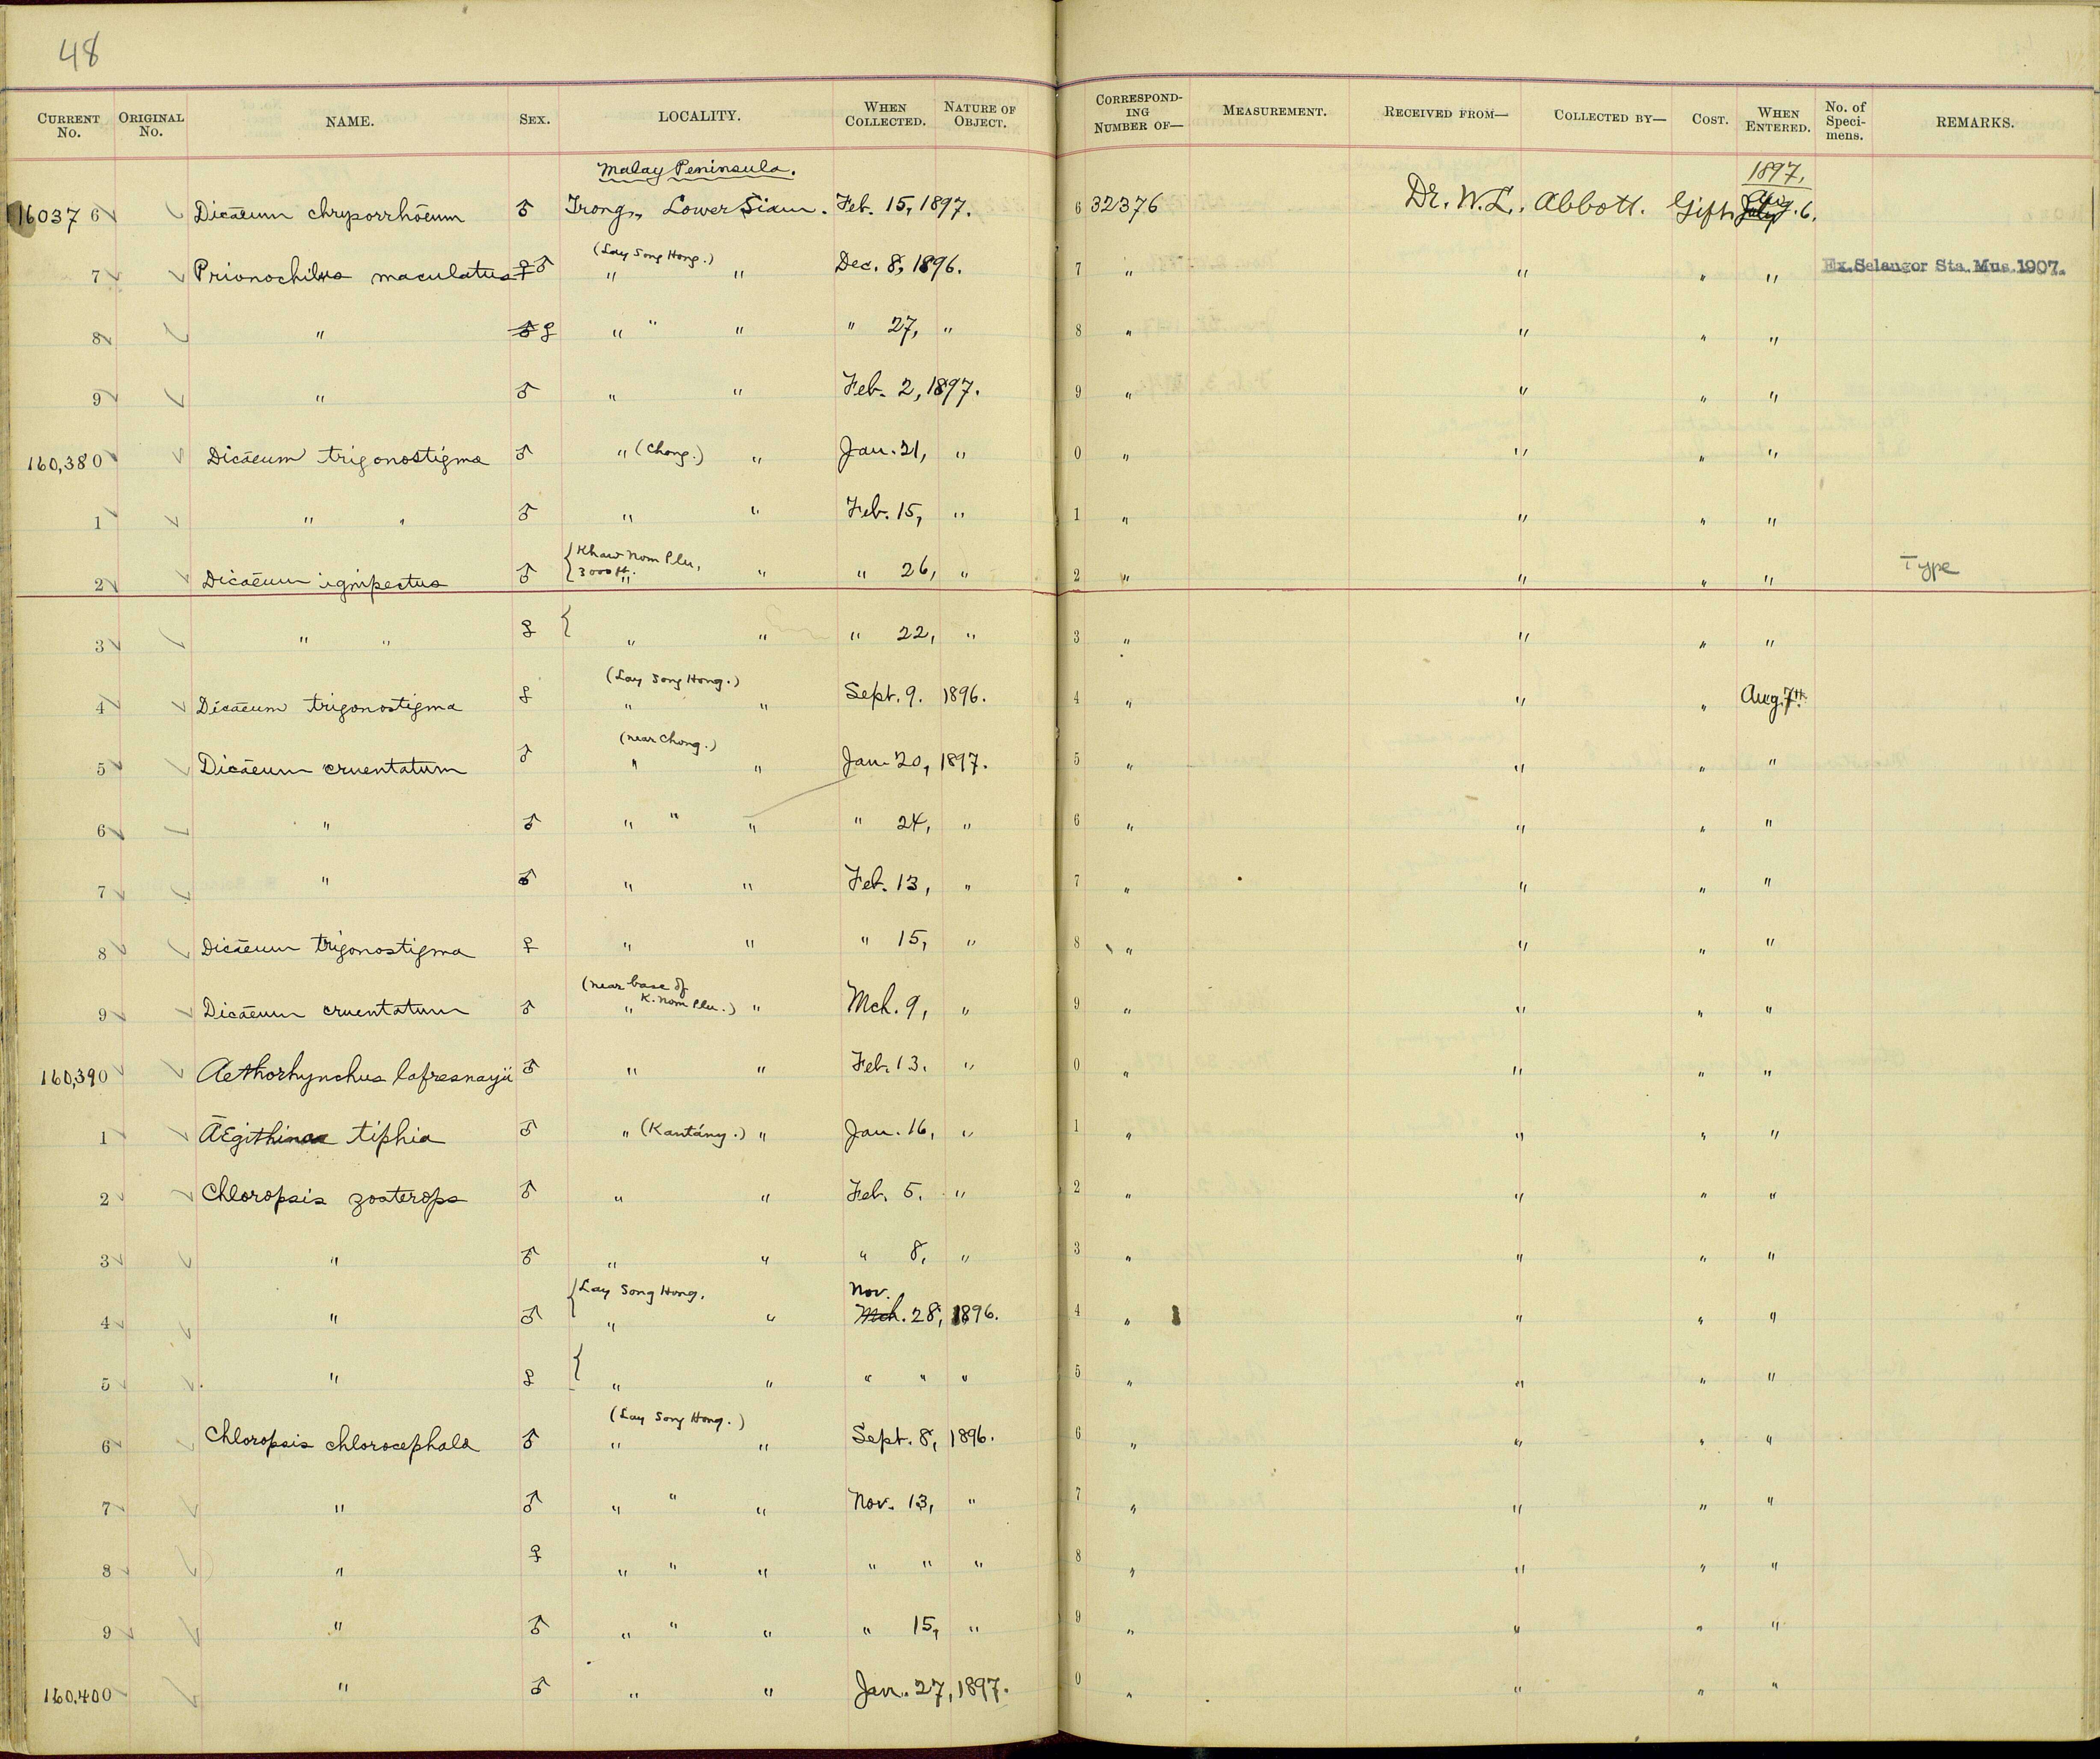 48
CURRENT No. ORIGINAL No. NAME. SEX. LOCALITY. WHEN COLLECTED. NATURE OF OBJECT. CORRESPONDING NUMBER OF— MEASUREMENT. RECEIVED FROM— COLLECTED BY— COST. WHEN ENTERED. No. of Specimens. REMARKS.
Malay Peninsula. 1897.
160376 Dicaeum chrysorrhoeum ♂ Trong, Lower Siam. Feb. 15, 1897. 6 32376 Dr. W. L. Abbott. Gift. Aug. 6.
(Lay Song Hong.)
7 Prionochilus maculatus ♀♂ " " Dec. 8, 1896. 7 " " " " Ex. Selangor Sta. Mus. 1907.
8 " ♂ ♀ " " " " 27, " 8 " " " "
9 " ♂ " " Feb. 2, 1897. 9 " " " "
160,380 Dicaeum trigonostigma ♂ " (Chong.) " Jan. 21, " 0 " " " "
1 " " ♂ " " Feb. 15, " 1 " " " "
{Khaw Nom Plu,
2 Dicaeum ignipectus ♂ 3000 ft. " " " 26, " 2 " " " " Type
3 " " ♀ { " " " 22, " 3 " " " "
(Lay Song Hong.)
4 Dicaeum trigonostigma ♀ " " Sept. 9. 1896. 4 " " " Aug. 7th.
(near Chong.)
5 Dicaeum cruentatum ♂ " " Jan. 20, 1897. 5 " " " "
6 " ♂ " " " " 24, " 6 " " " "
7 " ♂ " " Feb. 13, " 7 " " " "
8 Dicaeum trigonostigma ♀ " " " 15, " 8 " " " "
(near base of
9 Dicaeum cruentatum ♂ " K. Nom Plu.) " Mch. 9, " 9 " " " "
160,390 Aethorhynchus lafresnayii ♂ " " Feb. 13. " 0 " " " "
1 Aegithina tiphia ♂ " (Kantány.) " Jan. 16, " 1 " " " "
2 Chloropsis zosterops ♂ " " Feb. 5. " 2 " " " "
3 " ♂ " " " 8, " 3 " " " "
{Lay Song Hong. Nov.
4 " ♂ " " Mch. 28, 1896. 4 " " " "
5 " ♀ { " " " " " 5 " " " "
(Lay Song Hong.)
6 Chloropsis chlorocephala ♂ " " Sept. 8, 1896. 6 " " " "
7 " ♂ " " " Nov. 13, " 7 " " " "
8 " ♀ " " " " " " 8 " " " "
9 " ♂ " " " " 15, " 9 " " " "
160,400 " ♂ " " Jan. 27, 1897. 0 " " " "